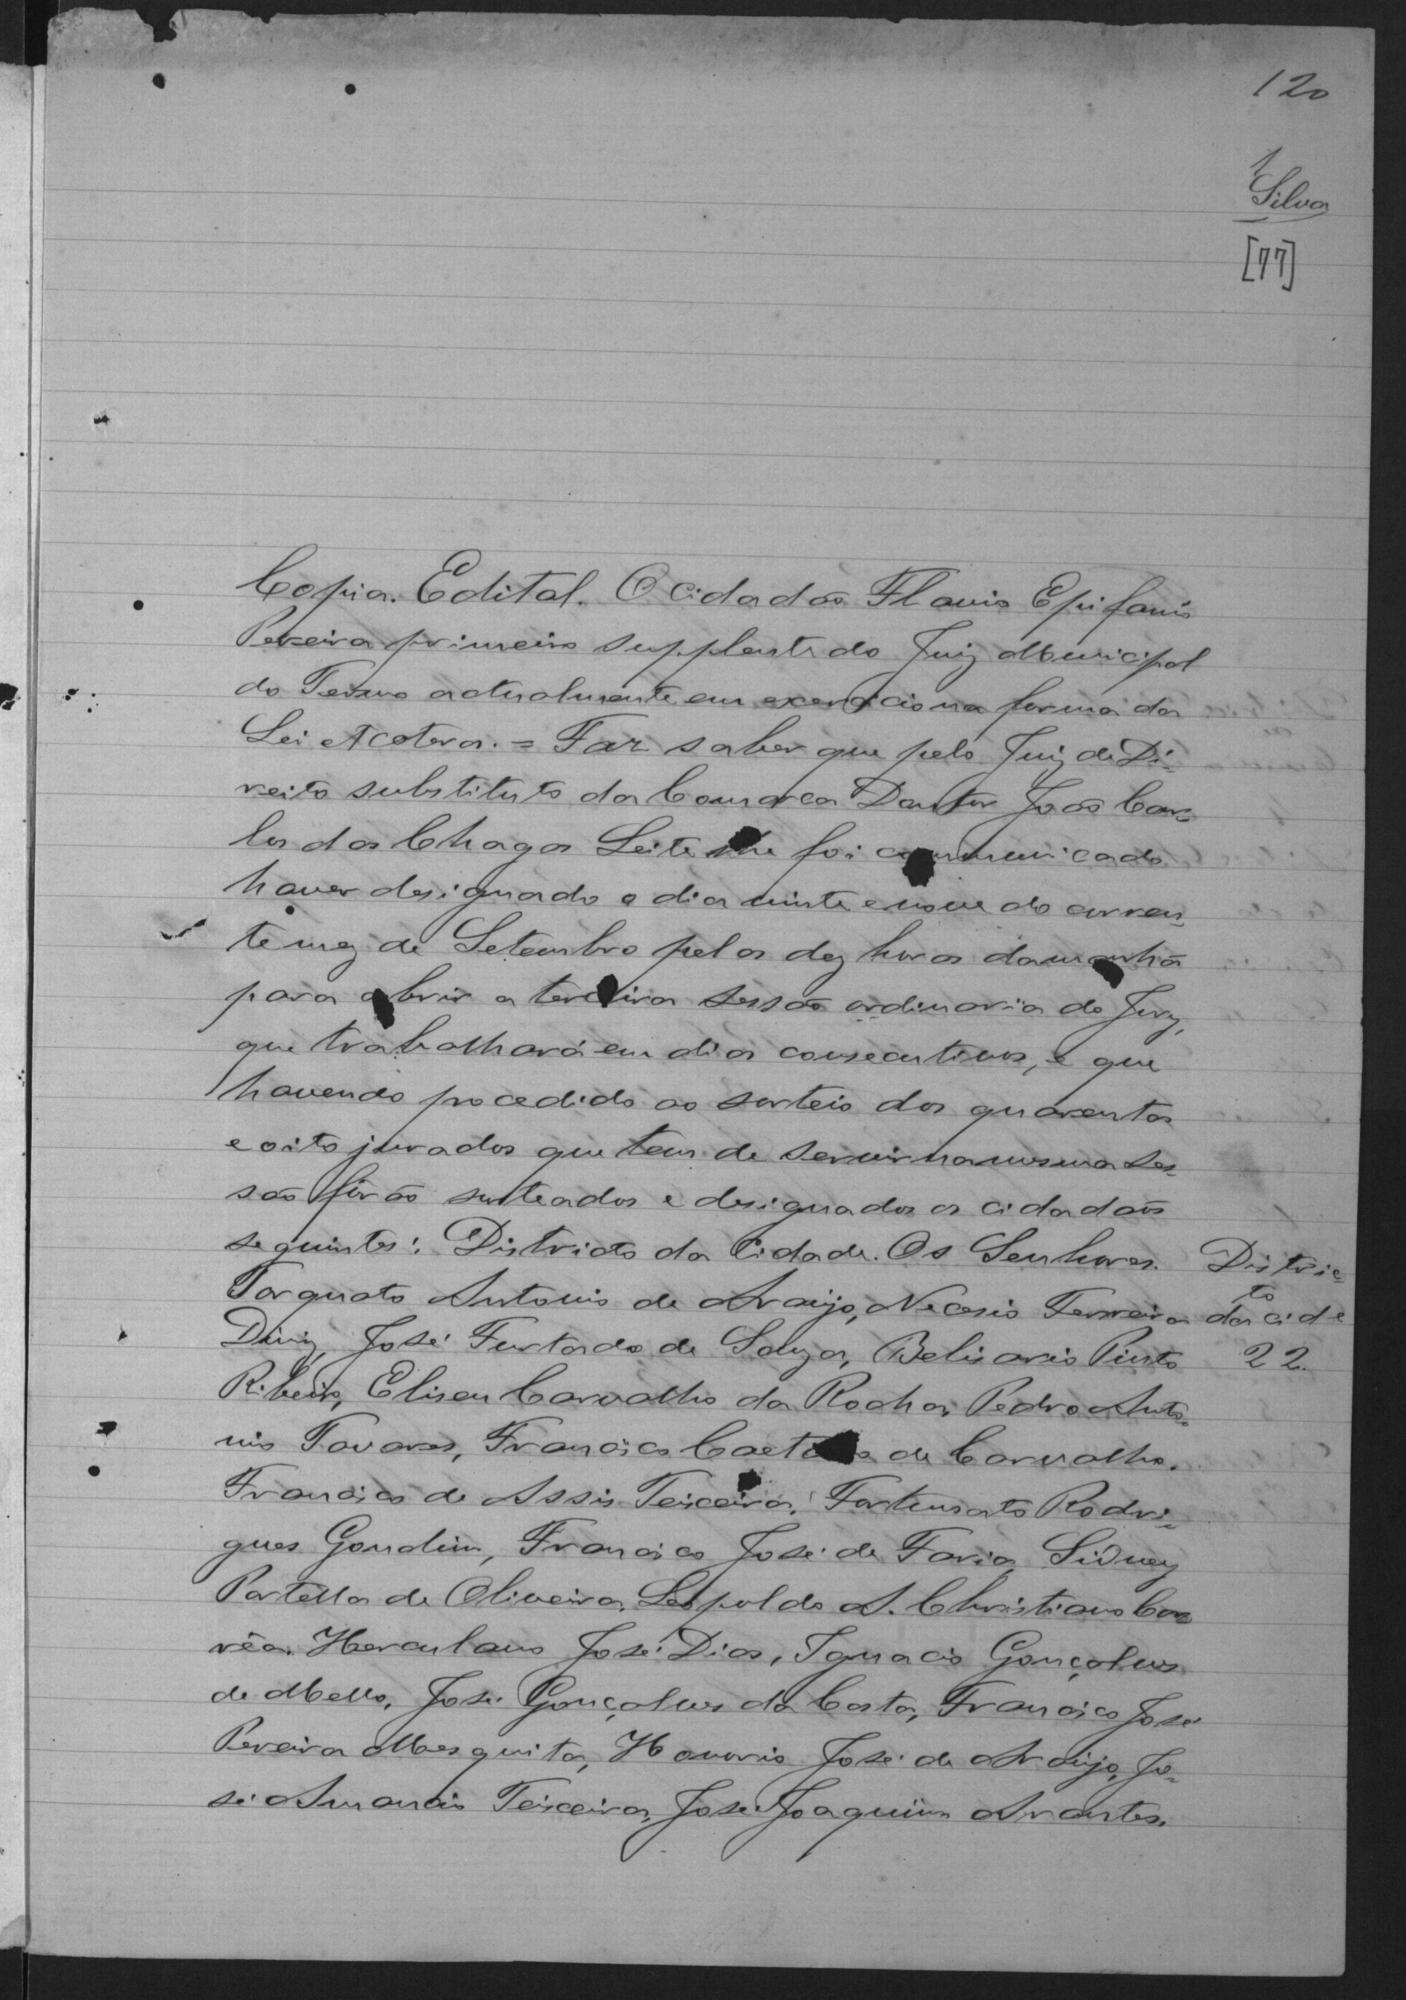 120
1
Silva
[77]
Copia. Edital. O cidadão Flavio Epifanio
Pereira primeiro supplente do Juiz Municipal
do Termo actualmente em exercicio na forma da
Lei etcetera. = Faz saber que pelo Juiz de Di-
reito substituto da Comarca Doutor João Car-
los das Chagas Leite lhe foi communicado
haver designado o dia vinte e nove do corren-
te mez de Setembro pelas dez horas da manhã
para abrir a terceira sessão ordinaria do Jury,
que trabalhará em dias consecutivos, e que
havendo procedido ao sorteio dos quarenta
e oito jurados que tem de servir na mesma ses-
são fôrão sorteados e designados os cidadãos
seguintes: Districto da Cidade. Os Senhores. Distric-
to
Torquato Antonio de Araujo, Necesio Ferreira da cid e
Diniz, José Furtado de Souza, Belisario Pinto 22.
Ribeiro, Eliseu Carvalho da Rocha, Pedro Anto-
nio Tavares, Francisco Caetano de Carvalho.
Francisco de Assis Teixeira, Fortunato Rodri-
gues Gondim, Francisco José de Faria, Sidney
Portella de Oliveira, Leopoldo A. Christiano Cor-
rêa. Herculano José Dias, Ignacio Gonçalves
de Mello, José Gonçalves da Costa, Francisco José
Pereira Mesquita, Honorio José de Araujo, Jo-
sé Amancio Teixeira, José Joaquim Arantes.